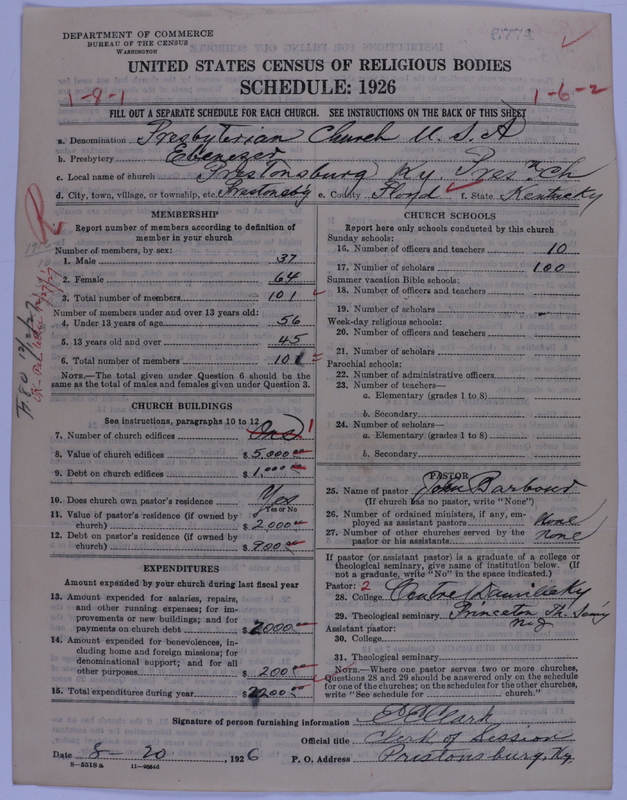 DEPARTMENT OF COMMERCE
BUREAU OF THE CENSUS
WASHINGTON
UNITED STATES CENSUS OF RELIGIOUS BODIES
SCHEDULE: 1926
1-9-1
1-6-2
FILL OUT A SEPARATE SCHEDULE FOR EACH CHURCH. SEE INSTRUCTIONS ON THE BACK OF THIS SHEET
a. Denomination Presbyterian Church U.S.A
b. Presbytery Ebenezer
c. Local name of church Prestonsburg Ky. Pres. Ch
d. City, town, village, or township, etc. Prestonsbg e. County Floyd f. State Kentucky
MEMBERSHIP
Report number of members according to definition of member in your church
Number of members, by sex:
1. Male 37
2. Female 64
3. Total number of members 101
Number of members under and over 13 years old:
4. Under 13 years of age 56
5. 13 years old and over 45
6. Total number of members 101
NOTE.—The total given under Question 6 should be the same as the total of males and females given under Question 3.
CHURCH BUILDINGS
See instructions, paragraphs 10 to 12
7. Number of church edifices One 1
8. Value of church edifices $ 5,000 00
9. Debt on church edifices $ 1,000 00
10. Does church own pastor's residence Yes
Yes or No
11. Value of pastor's residence (if owned by church) $ 2,000
12. Debt on pastor's residence (if owned by church) $ 900
EXPENDITURES
Amount expended by your church during last fiscal year
13. Amount expended for salaries, repairs, and other running expenses; for improvements or new buildings; and for payments on church debt $ 2000
14. Amount expended for benevolences, including home and foreign missions; for denominational support; and for all other purposes $ 200
15. Total expenditures during year $ 2200
CHURCH SCHOOLS
Report here only schools conducted by this church
Sunday schools:
16. Number of officers and teachers 10
17. Number of scholars 100
Summer vacation Bible schools:
18. Number of officers and teachers
19. Number of scholars
Week-day religious schools:
20. Number of officers and teachers
21. Number of scholars
Parochial schools:
22. Number of administrative officers
23. Number of teachers—
a. Elementary (grades 1 to 8)
b. Secondary
24. Number of scholars—
a. Elementary (grades 1 to 8)
b. Secondary
PASTOR
25. Name of pastor John Barbour
(If church has no pastor, write "None")
26. Number of ordained ministers, if any, employed as assistant pastors None
27. Number of other churches served by the pastor or his assistants none
If pastor (or assistant pastor) is a graduate of a college or theological seminary, give name of institution below. (If not a graduate, write "No" in the space indicated.)
Pastor: 2
28. College Centre
29. Theological seminary Princeton Th. Seminy
N.J
Assistant pastor:
30. College
31. Theological seminary
NOTE.—Where one pastor serves two or more churches, Questions 28 and 29 should be answered only on the schedule for one of the churches; on the schedules for the other churches, write "See schedule for church."
Signature of person furnishing information Clark
Official title Clerk of Session
Date 8-20, 1926 P. O. Address Prestonsburg, Ky.
8—5518 a